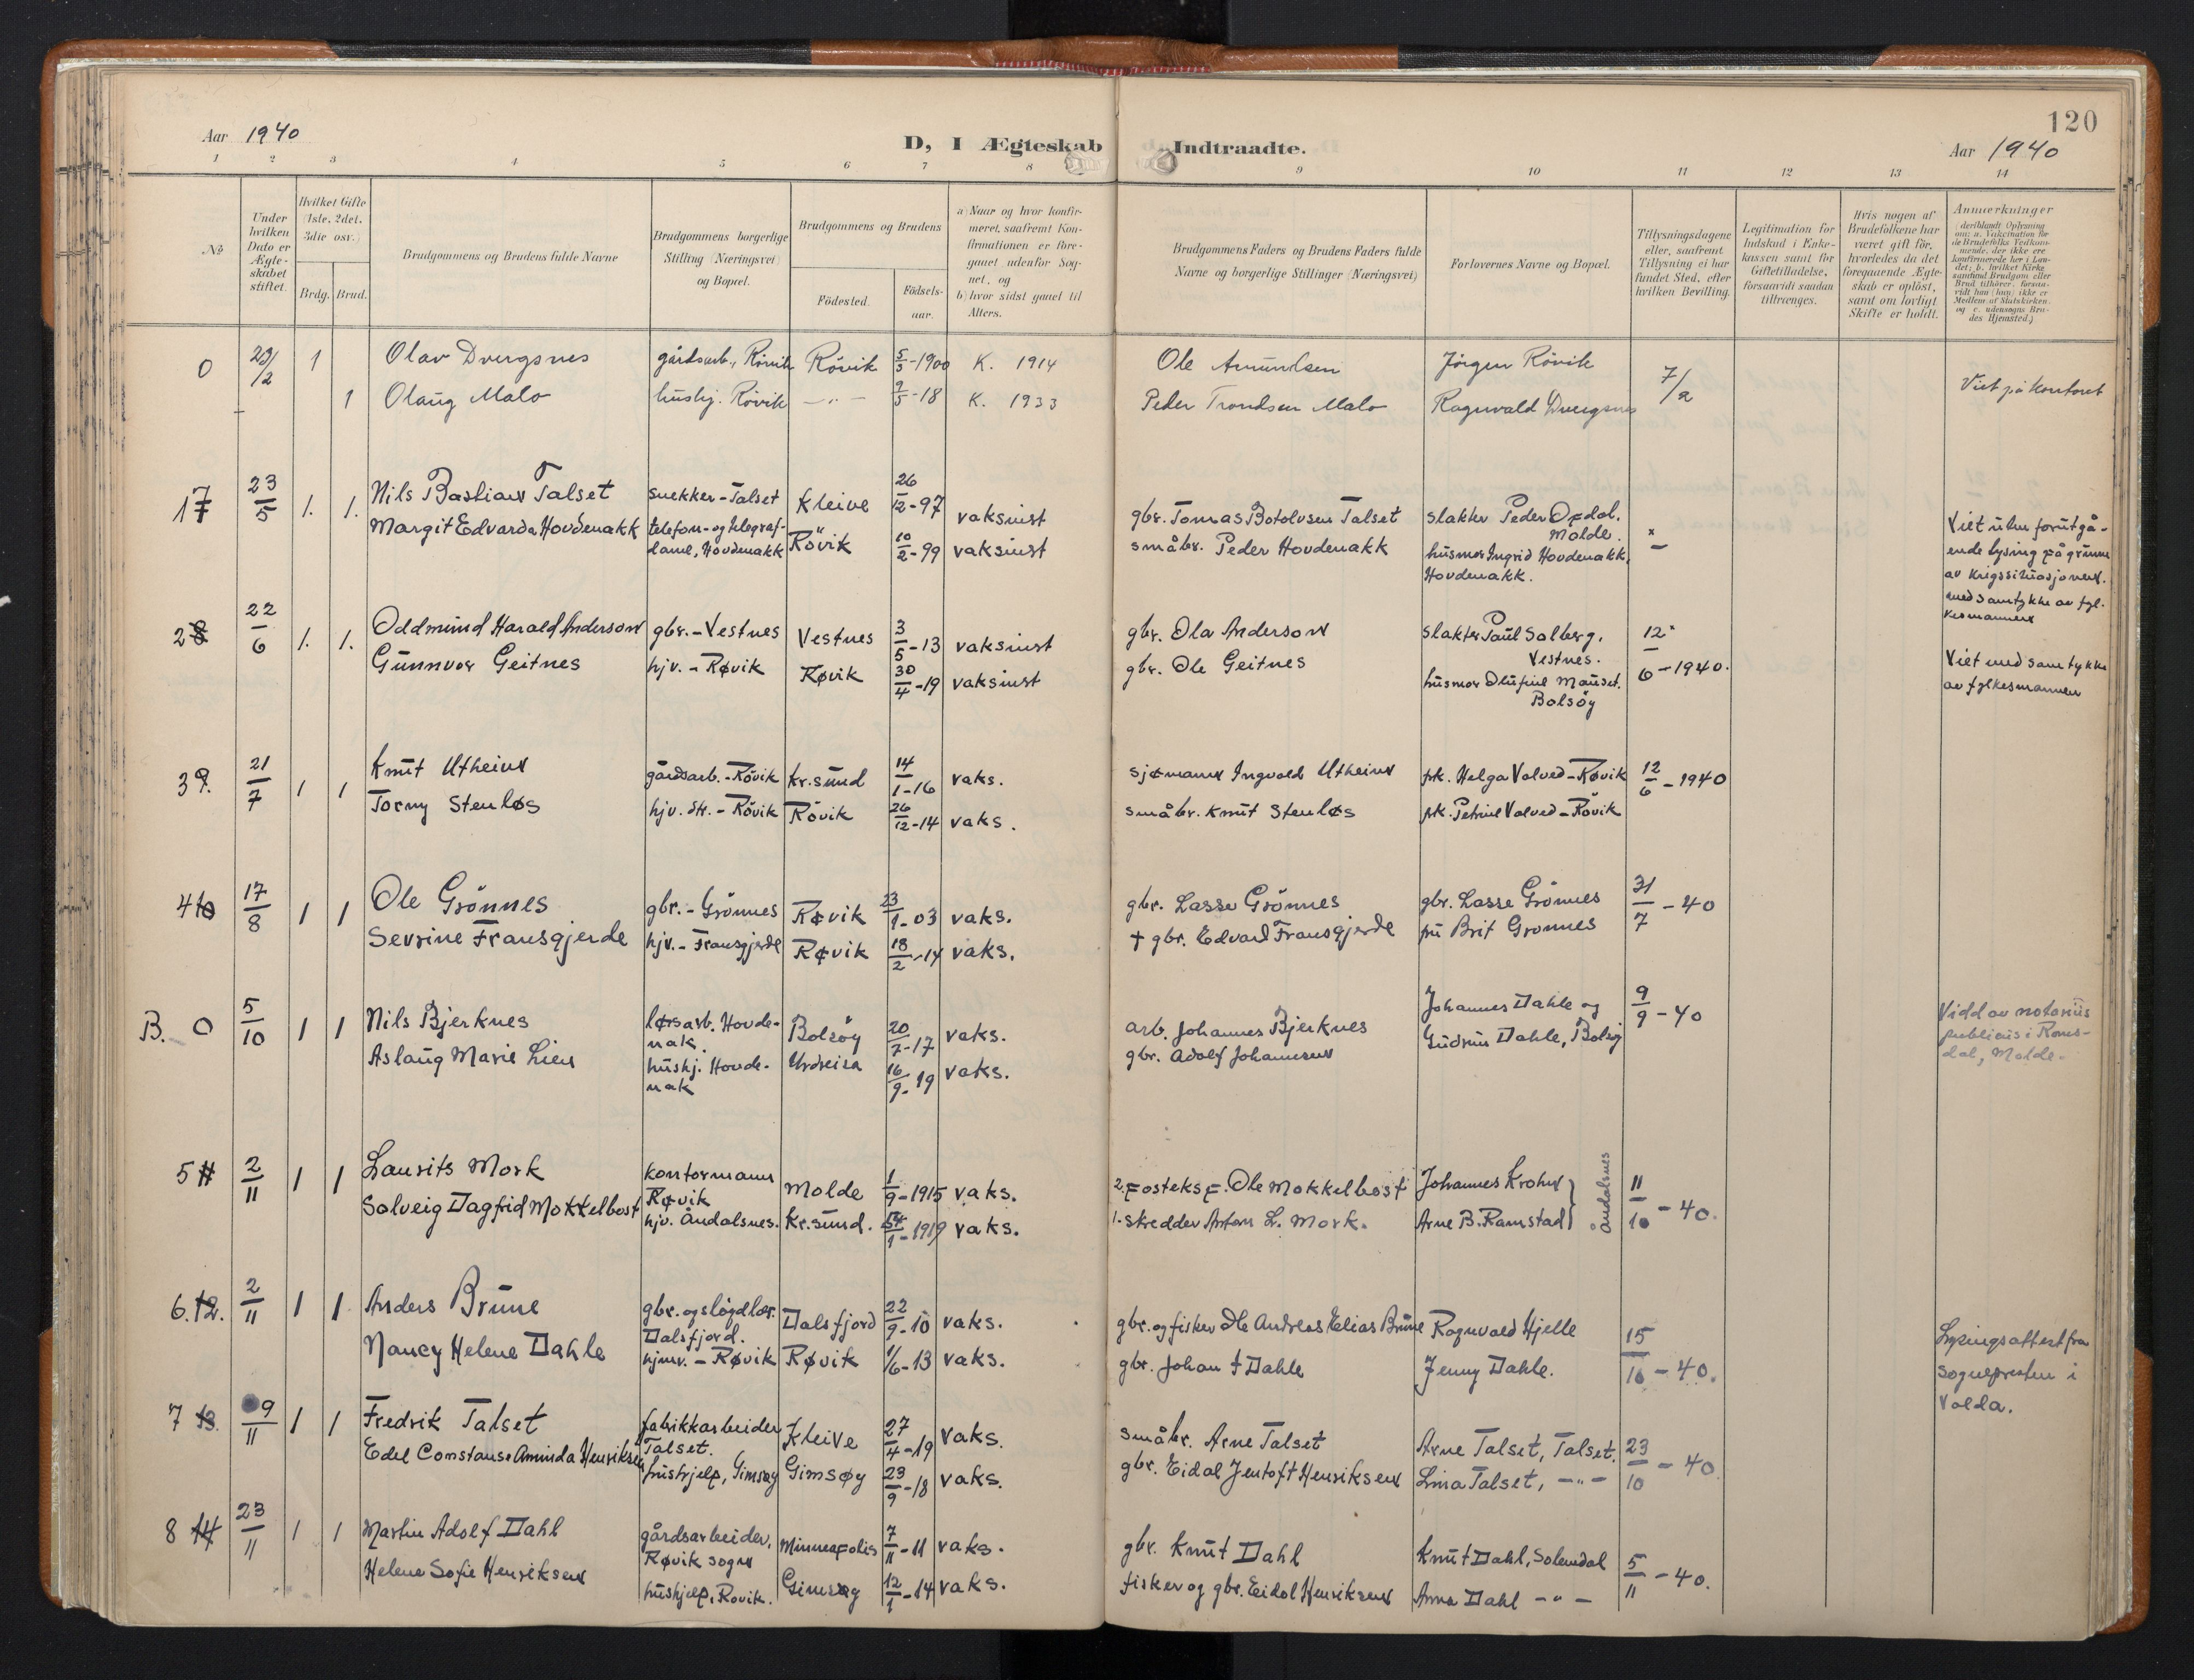 120
Aar 1940
D, I Ægteskab Indtraadte.
Aar 1940
1 2 3 4 5 6 7 8 9 10 11 12 13 14
№
Under hvilken Dato er Ægteskabet stiftet.
Hvilket Gifte (1ste, 2det, 3die osv.)
Brdg. Brud.
Brudgommens og Brudens fulde Navne
Brudgommens borgerlige Stilling (Næringsvei) og Bopæl.
Brudgommens og Brudens
Födested.
Födselsaar.
a) Naar og hvor konfirmeret, saafremt Konfirmationen er foregaaet udenfor Sognet, og
b) hvor sidst gaaet til Alters.
Brudgommens Faders og Brudens Faders fulde Navne og borgerlige Stillinger (Næringsvei)
Forlovernes Navne og Bopæl.
Tillysningsdagene eller, saafremt Tillysning ei har fundet Sted, efter hvilken Bevilling.
Legitimation for Indskud i Enkekassen samt for Giftetilladelse, forsaavidt saadan tiltrænges.
Hvis nogen af Brudefolkene har været gift før, hvorledes da det foregaaende Ægteskab er oplöst, samt om lovligt Skifte er holdt.
Anmerkninger
(deriblandt Oplysning om: a. Vakcination for de Brudefolks Vedkommende, der ikke ere konfirmerede her i Landet; b. hvilket Kirkesamfund Brudgom eller Brud tilhörer, forsaavidt han (hun) ikke er Medlem af Statskirken. og c. udensogns Brudes Hjemsted.)
0 23/2 1 Olav Dvergsnes gårdsarb., Rövik Rövik 5/3-1900 K. 1914 Ole Amundsen Jörgen Rövik 7/2 Viet på kontoret
1 Olaug Malo hushj. Rövik -"- 9/5-18 K. 1933 Peder Trondsen Malo Ragnvald Dvergsnes
1 7 23/5 1. 1. Nils Bastian Talset snekker-Talset Kleive 26/12-97 vaksinst gbr. Tomas Botolvsen Talset slakter Peder Opdol, Molde.
Margit Edvarda Hovdenakk telefon- og telegraf-dame, Hovdenakk Rövik 10/2-99 vaksinst småbr. Peder Hovdenakk husmor Ingrid Hovdenakk, Hovdenakk.
Viet uten forutgå-
ende lysing på grunn
av krigssituasjonen.
med samtykke av fyl-
kesmannen
2 8 22/6 1. 1. Oddmund Harald Anderson gbr.-Vestnes Vestnes 3/5-13 vaksinst gbr. Ola Anderson slakter Paul Solberg, Vestnes. 12/6-1940.
Gunnvor Geitnes hjv.-Røvik Røvik 30/4-19 vaksinst gbr. Ole Geitnes husmor Olufine Mauset. Bolsöy
Viet med samtykke
av fylkesmannen
3 9. 21/7 1 1 Knut Utheim gårdsarb.-Rövik Kr.sund 14/1-16 vaks. sjømann Ingvald Utheim frk. Helga Valved-Røvik 12/6-1940
Torny Stenløs hjv. str.-Rövik Rövik 26/12-14 vaks. småbr. Knut Stenløs frk. Petrine Valved-Rövik
4 10 17/8 1 1 Ole Grönnes gbr.-Grönnes Røvik 23/1-03 vaks. gbr. Lasse Grönnes gbr. Lasse Grönnes 31/7-40
Sevrine Fransgjerde hjv.-Fransgjerde Røvik 18/2-14 vaks. † gbr. Edvard Fransgjerde fru Brit Grønnes
B. 0 5/10 1 1 Nils Bjerknes løsarb. Hovde-nak. Bolsöy 20/7-17 vaks. arb. Johannes Bjerknes Johannes Dahle og 9/9-40
Aslaug Marie Lien hushj. Hovde-nak 16/9-19 vaks. gbr. Adolf Johannesen Gudrun Dahle, Bolsöy
Vidd av notarius
publicus i Roms-
dal, Molde.
5 11 2/11 1 1 Laurits Mork kontormann Røvik Molde 1/9-1915 vaks. 2. Ole Mokkelbost Johannes Krohn
Solveig Dagfrid Mokkelbost hjv. Åndalsnes. Kr.sund. 1-1919 vaks. 1. skredder Anton L. Mork. Arne B. Ramstad Åndalsnes 11/10-40.
6. 12. 2/11 1 1 Anders Brune gbr. og sløgdlær. Dalsfjord. Dalsfjord 22/9-10 vaks. gbr. og fisker Ole Andreas Elias Brune Ragnvald Hjelle 15/10-40.
Nancy Helene Dahle hjmv.-Røvik Røvik 1/6-13 vaks. gbr. Johan t Dahle Jenny Dahle.
Lysingsattest fra
sognepresten i
Volda.
7 13. 9/11 1 1 Fredrik Talset fabrikkarbeider Talset. Kleive 27/4-19 vaks. småbr. Arne Talset Arne Talset, Talset. 23/10-40
Edel Constanse Aminda Henriksen hushjelp, Gimsøy Gimsøy 23/9-18 vaks. gbr. Eidal Jentoft Henriksen Lina Talset, -"-
8 14 23/11 1 1 Martin Adolf Dahl gårdsarbeider, Røvik sogn Minneapolis 7/11-11 vaks. gbr. Knut Dahl Knut Dahl, Solemdal 5/11-40.
Helene Sofie Henriksen hushjelp, Rovik. Gimsøy 12/1-14 vaks. fisker og gbr. Eidol Henriksen Anna Dahl -"-